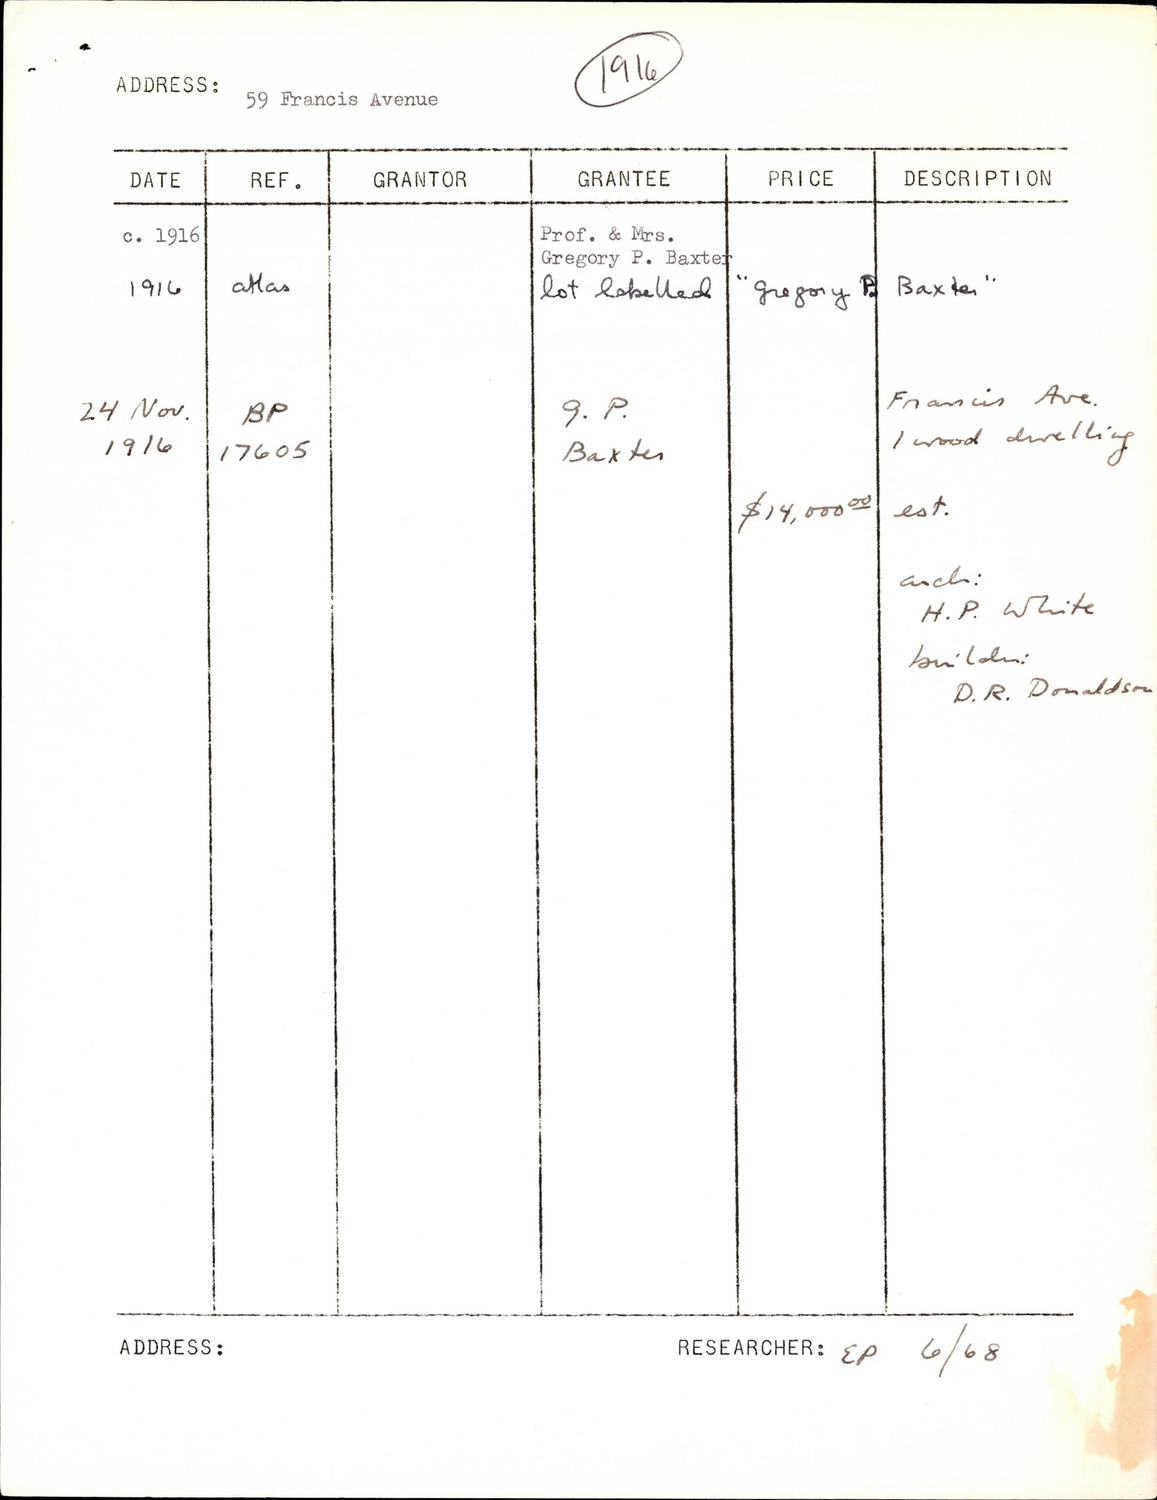 1916
ADDRESS: 59 Francis Avenue
DATE REF. GRANTOR GRANTEE PRICE DESCRIPTION
c. 1916 Prof. & Mrs.
Gregory P. Baxter
1916 atlas lot labelled "Gregory P. Baxter"
24 Nov. BP G. P. Francis Ave.
1916 17605 Baxter 1 wood dwelling
$14,000.00 est.
arch:
H.P. White
builder:
D.R. Donaldson
ADDRESS: RESEARCHER: EP 6/68